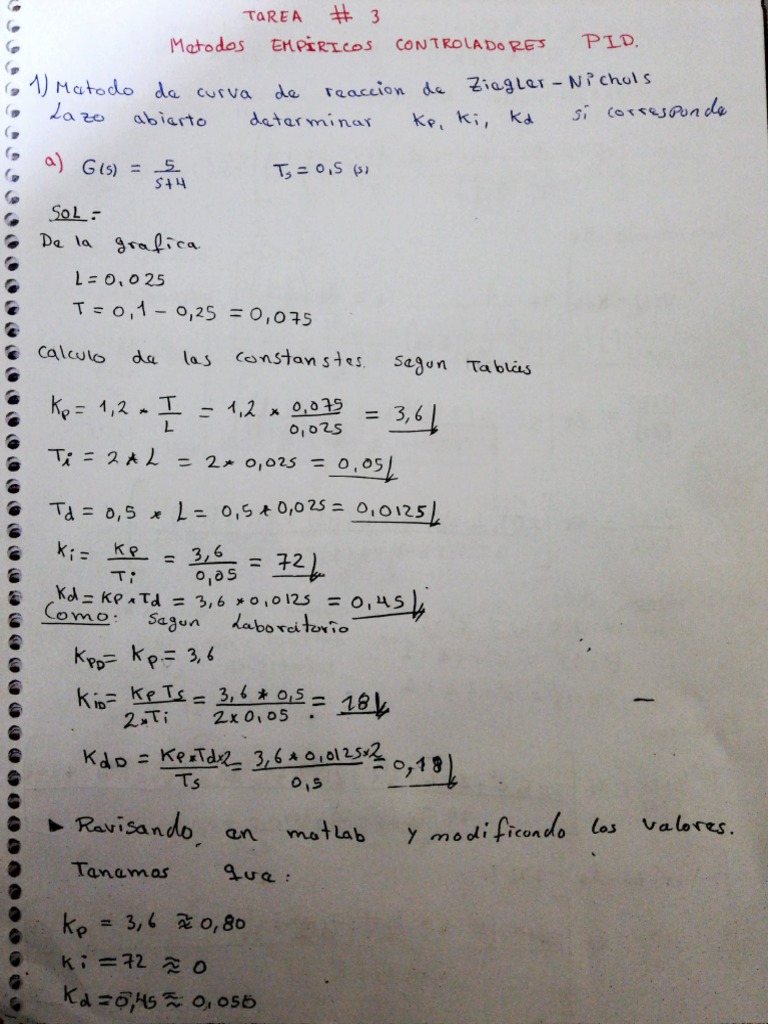 TAREA # 3
Metodos EMPÍRICOS CONTROLADORES PID.
1) Metodo de curva de reaccion de Ziegler-Nichols
Lazo abierto determinar Kp, Ki, Kd si corresponde
a) G(s) = 5/(s+4) Ts = 0,5 (s)
SOL =
De la grafica
L = 0,025
T = 0,1 - 0,25 = 0,075
Calculo de las constanstes segun Tablas
Kp = 1,2 * T/L = 1,2 * 0,075/0,025 = 3,6
Ti = 2 * L = 2 * 0,025 = 0,05
Td = 0,5 * L = 0,5 * 0,025 = 0,0125
Ki = Kp/Ti = 3,6/0,05 = 72
Kd = Kp * Td = 3,6 * 0,0125 = 0,45
Como: Segun Laboratorio
KpD = Kp = 3,6
KiD = Kp Ts/2*Ti = 3,6 * 0,5/2 x 0,05 = 18
KdD = Kp*Td*2/Ts = 3,6 * 0,0125*2/0,5 = 0,18
► Revisando en matlab y modificando los valores.
Tenemos que:
Kp = 3,6 ≈ 0,80
Ki = 72 ≈ 0
Kd = 0,45 ≈